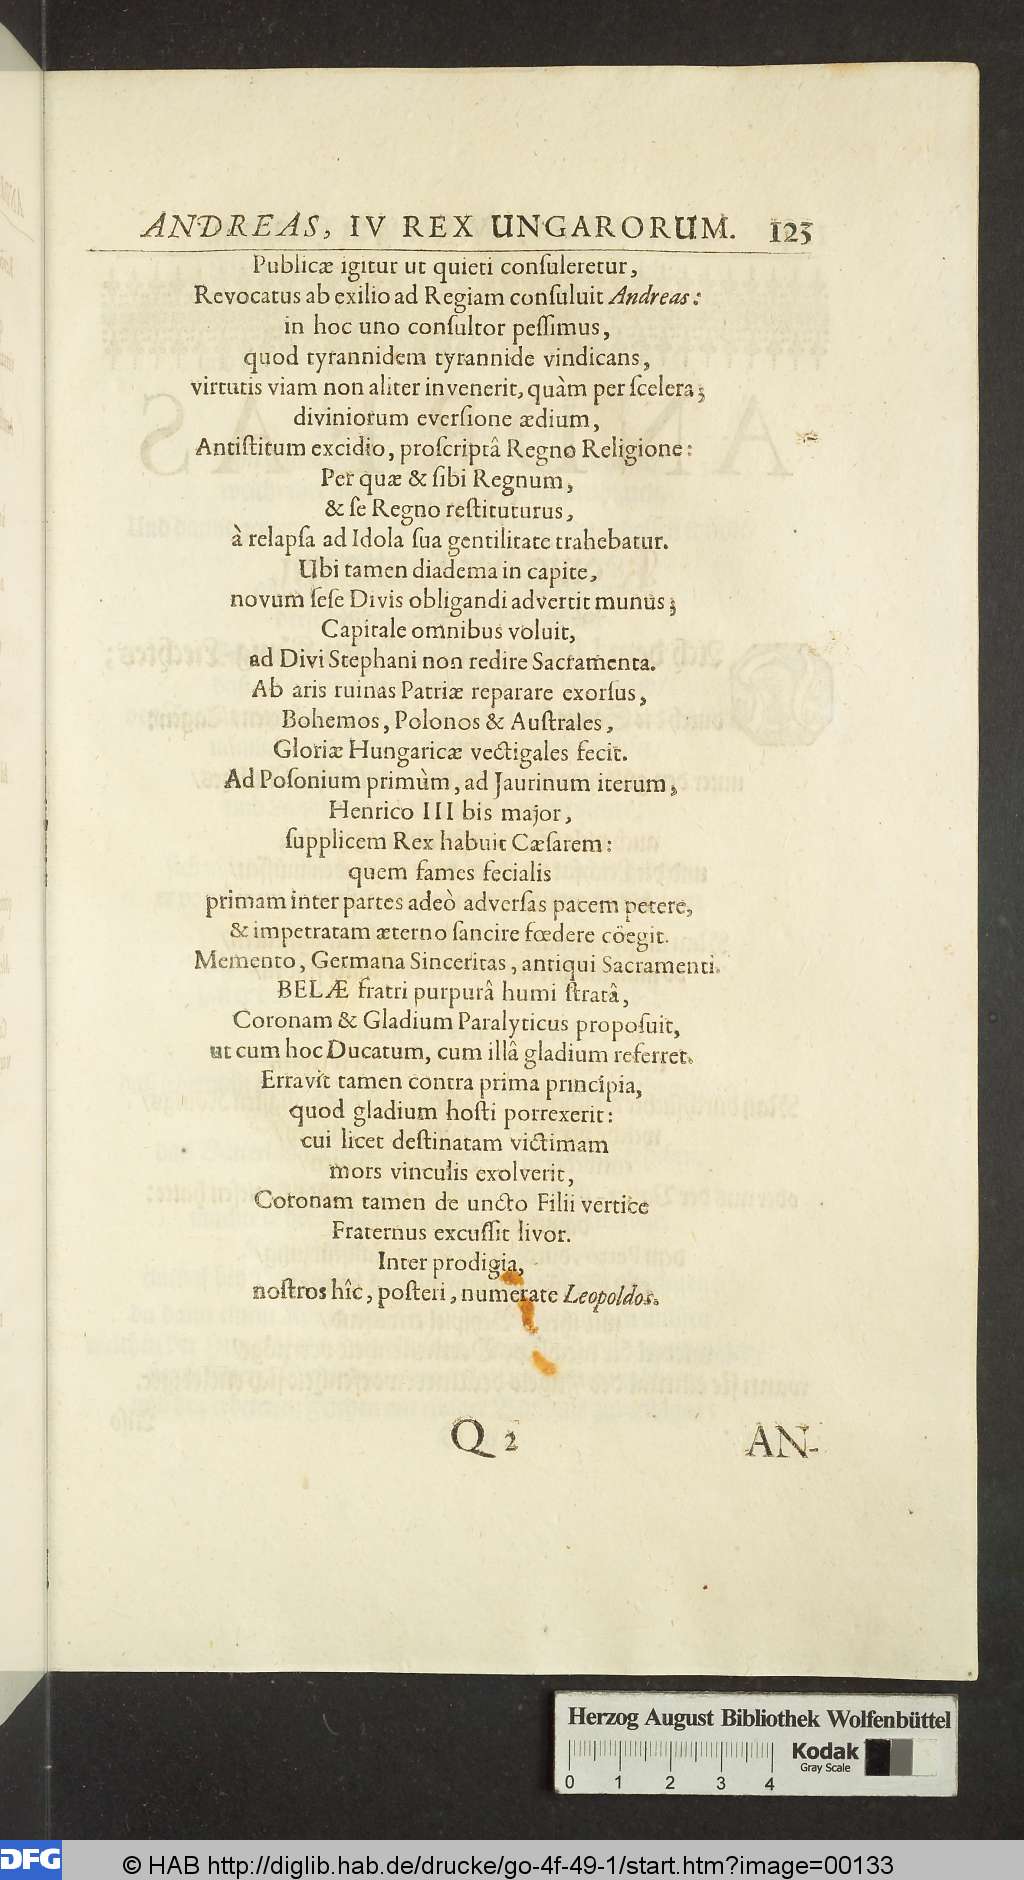 ANDREAS, IV REX UNGARORUM. 125
Publicæ igitur ut quieti conſuleretur,
Revocatus ab exilio ad Regiam conſuluit Andreas:
in hoc uno conſultor peſſimus,
quod tyrannidem tyrannide vindicans,
virtutis viam non aliter invenerit, quàm per ſcelera;
diviniorum everſione ædium,
Antiſtitum excidio, proſcriptâ Regno Religione:
Per quæ & ſibi Regnum,
& ſe Regno reſtituturus,
à relapſa ad Idola ſua gentilitate trahebatur.
Ubi tamen diadema in capite,
novum ſeſe Divis obligandi advertit munus;
Capitale omnibus voluit,
ad Divi Stephani non redire Sacramenta.
Ab aris ruinas Patriæ reparare exorſus,
Bohemos, Polonos & Auſtrales,
Gloriæ Hungaricæ vectigales fecit.
Ad Poſonium primùm, ad Jaurinum iterum,
Henrico III bis major,
ſupplicem Rex habuit Cæſarem:
quem fames fecialis
primam inter partes adeò adverſas pacem petere,
& impetratam æterno ſancire fœdere cöegit.
Memento, Germana Sinceritas, antiqui Sacramenti.
BELÆ fratri purpurâ humi ſtratâ,
Coronam & Gladium Paralyticus propoſuit,
ut cum hoc Ducatum, cum illâ gladium referret.
Erravit tamen contra prima principia,
quod gladium hoſti porrexerit:
cui licet deſtinatam victimam
mors vinculis exolverit,
Coronam tamen de uncto Filii vertice
Fraternus excuſſit livor.
Inter prodigia,
noſtros hîc, poſteri, numerate Leopoldos.
Q 2 AN-
Herzog August Bibliothek Wolfenbüttel
Kodak
Gray Scale
0 1 2 3 4
DFG © HAB http://diglib.hab.de/drucke/go-4f-49-1/start.htm?image=00133